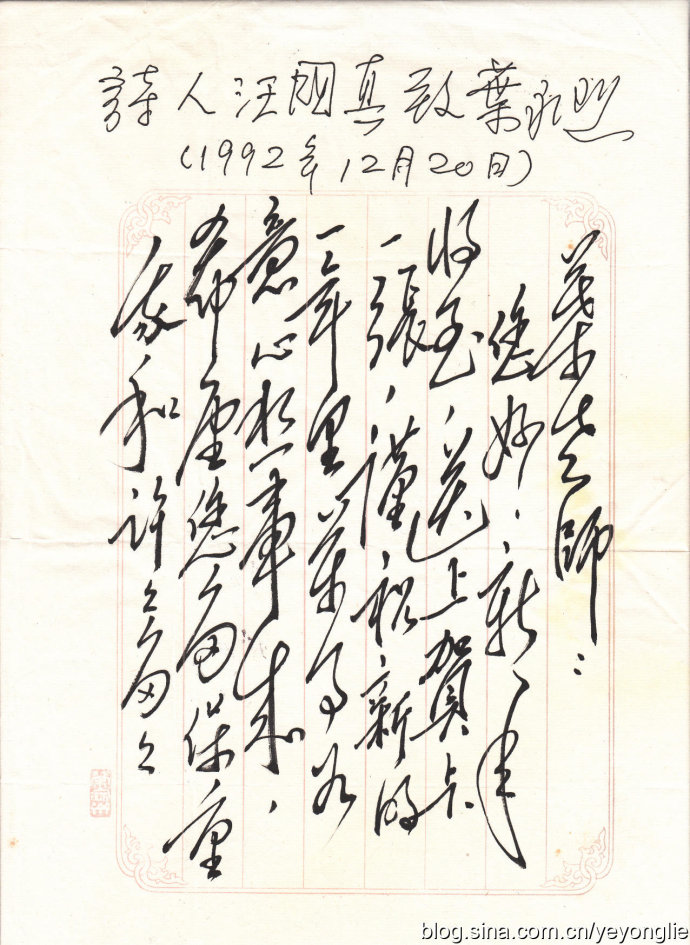 詩人汪國真致葉永烈
(1992年12月20日)
葉老師：
您好！新年
将至，送上賀卡
一張，謹祝新的
一年里萬事如
意心想事成，
希望您多保重
和許々多々
blog.sina.com.cn/yeyonglie